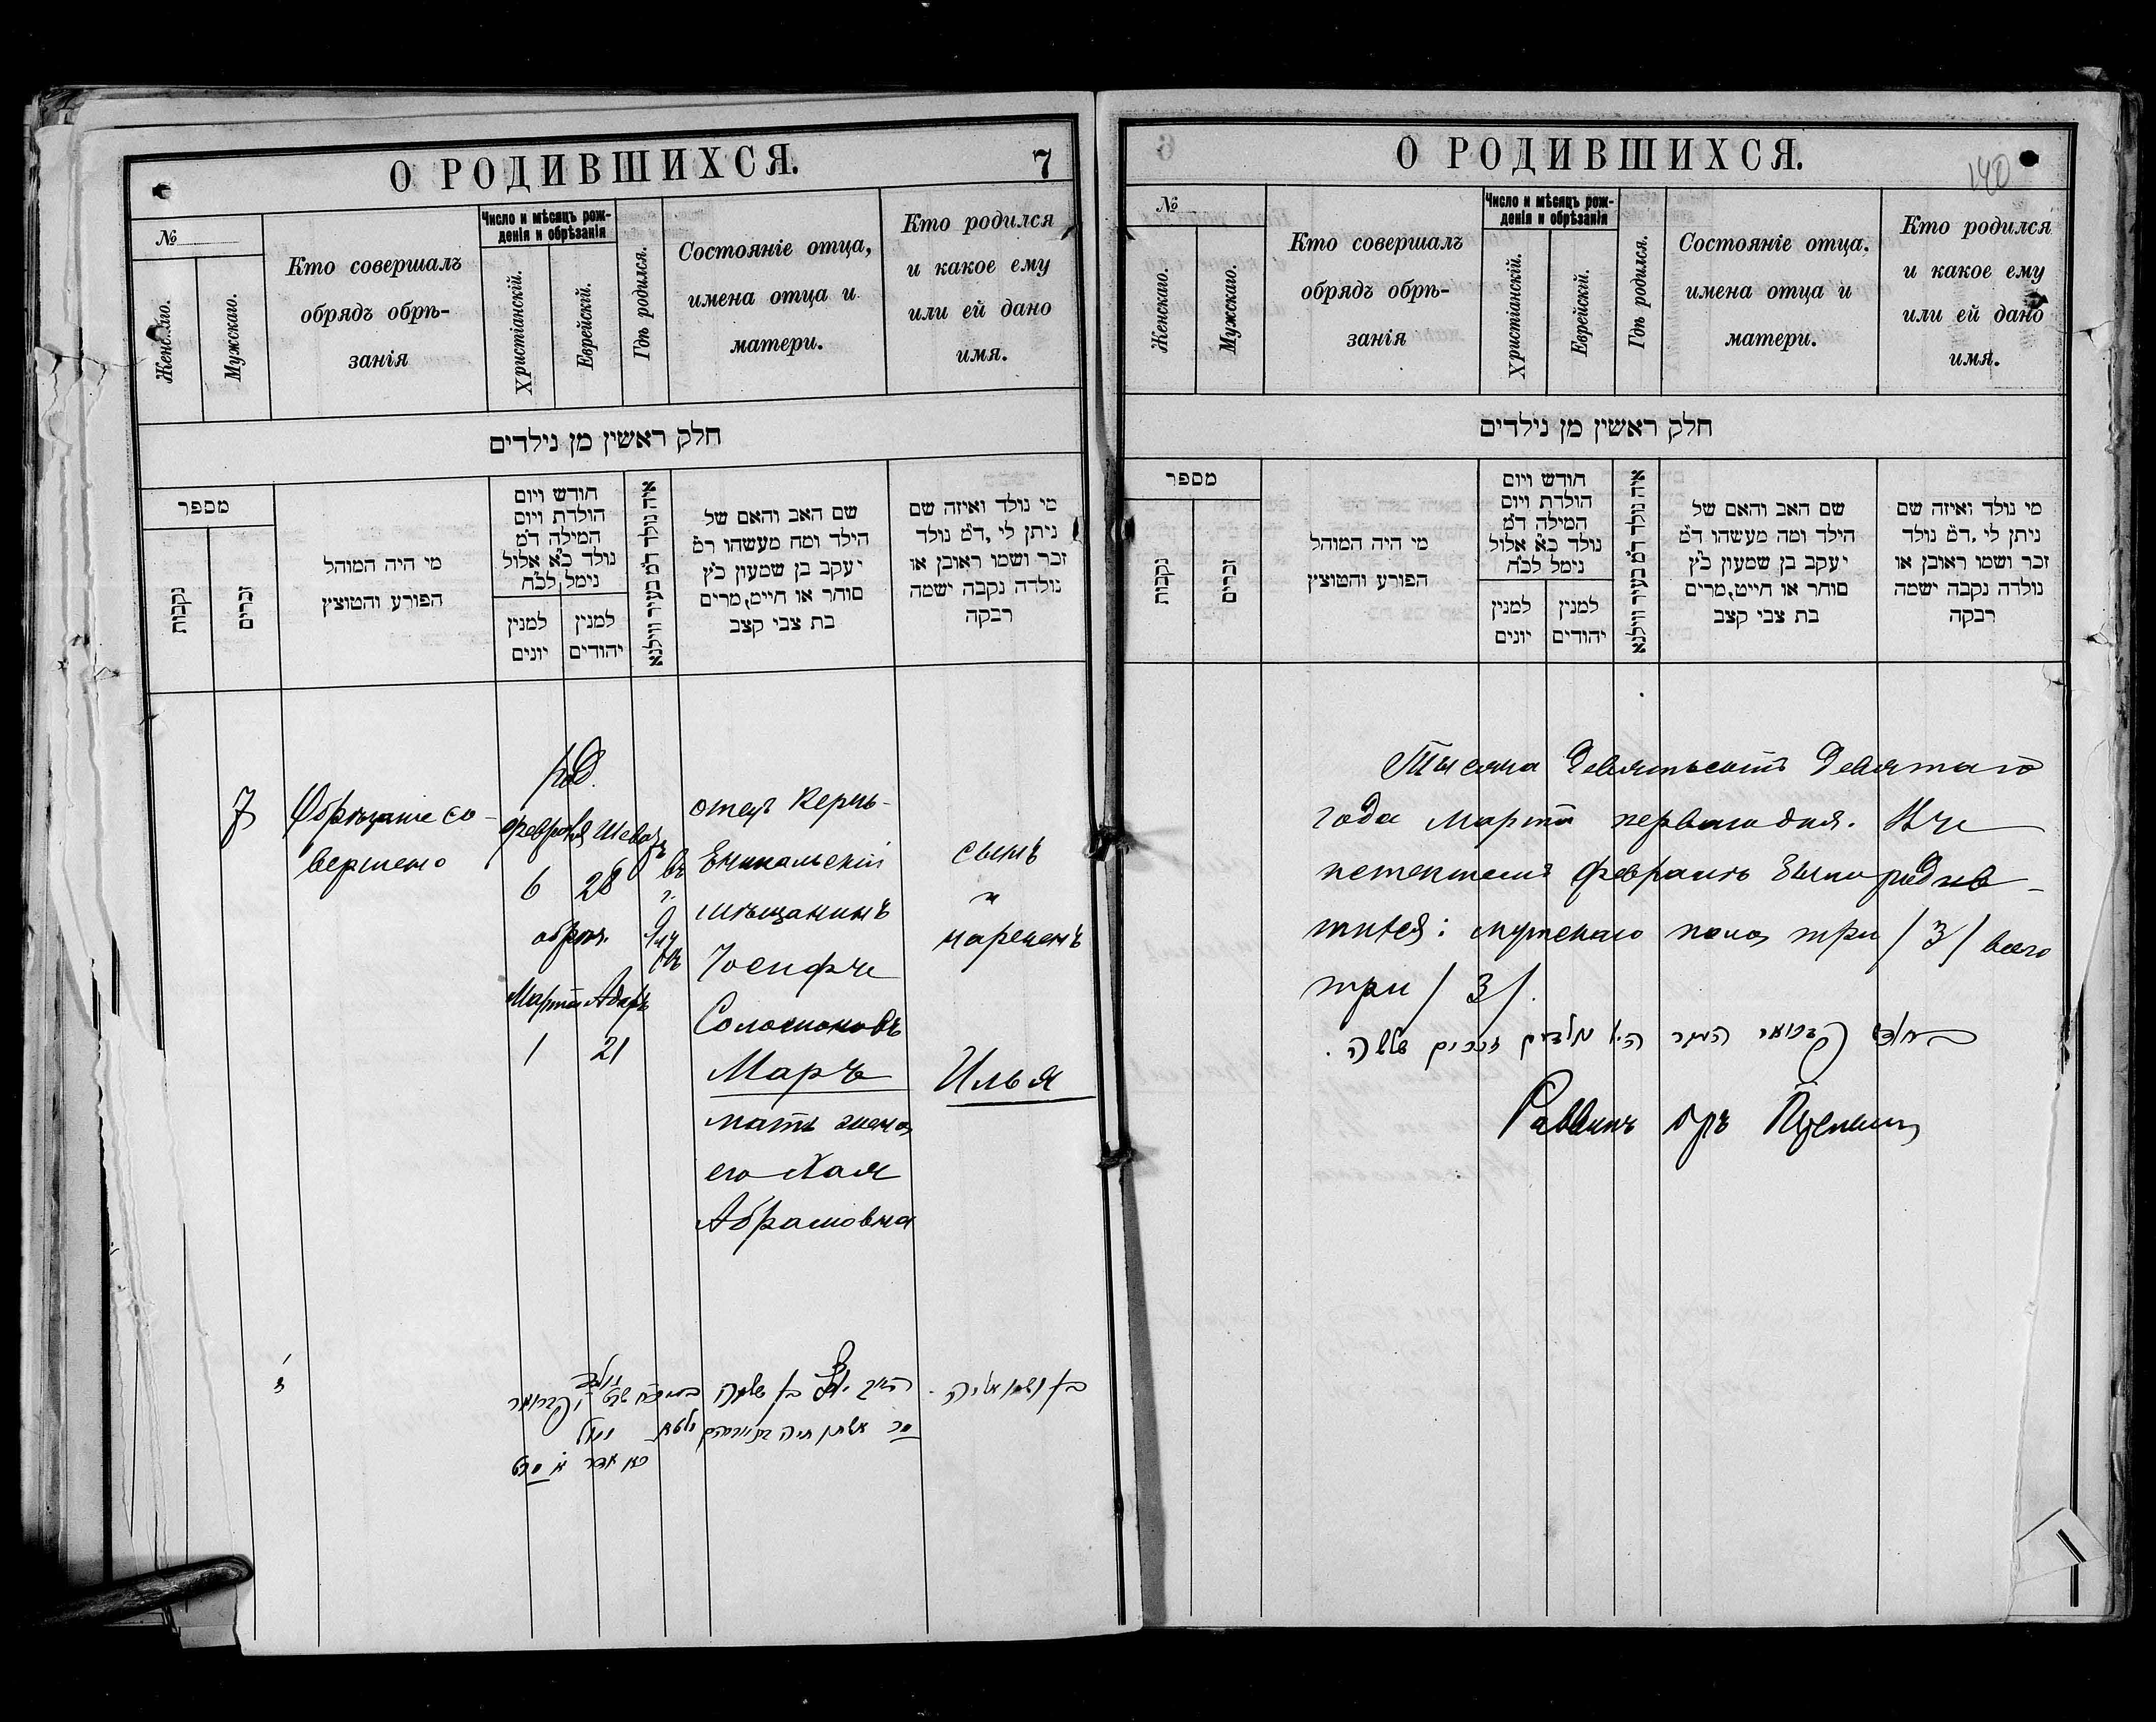 О РОДИВШИХСЯ.
7
№
Женскаго.
Мужскаго.
Кто совершалъ
обрядъ обрѣ-
занія
Число и мѣсяцъ рож-
денія и обрѣзанія
Христіанскій.
Еврейскій.
Гдѣ родился.
Состояніе отца,
имена отца и
матери.
Кто родился
и какое ему
или ей дано
имя.
חלק ראשין מן נילדים
מספר
נקבות
זכרים
מי היה המוהל
הפורע והמוצץ
חודש ויום
הולדת ויום
המילה ד״מ
נולד כ״א אלול
נימל לכ״ח
למנין
יונים
למנין
יהודים
איה נולד ד״מ בעיר ווילנא
שם האב והאם של
הילד ומה מעשהו ד״מ
יעקב בן שמעון כ״ץ
סוחר או חייט, מרים
בת צבי קצב
מי נולד ואיזה שם
ניתן לי, ד״מ נולד
זכר ושמו ראובן או
נולדה נקבה ישמה
רבקה
7
Обрѣзаніе со-
вершено
род.
февраля Шеватъ
6 28
обрѣз.
Марта Адаръ
1 21
въ
г.
отецъ Керчь-
Еникальскій
мѣщанинъ
Іосифъ
Соломоновъ
Маръ
мать жена
его Хая
Абрамовна
сынъ
и
нареченъ
Илья
בן ושמו אליה
בן שלמה
נולד
אשתו חיה
נימול
כא אדר
О РОДИВШИХСЯ.
140
№
Женскаго.
Мужскаго.
Кто совершалъ
обрядъ обрѣ-
занія
Число и мѣсяцъ рож-
денія и обрѣзанія
Христіанскій.
Еврейскій.
Гдѣ родился.
Состояніе отца.
имена отца и
матери.
Кто родился
и какое ему
или ей дано
имя.
חלק ראשין מן נילדים
מספר
נקבות
זכרים
מי היה המוהל
הפורע והמוצץ
חודש ויום
הולדת ויום
המילה ד״מ
נולד כ״א אלול
נימל לכ״ח
למנין
יונים
למנין
יהודים
איה נולד ד״מ בעיר ווילנא
שם האב והאם של
הילד ומה מעשהו ד״מ
יעקב בן שמעון כ״ץ
סוחר או חייט, מרים
בת צבי קצב
מי נולד ואיזה שם
ניתן לי, ד״מ נולד
זכר ושמו ראובן או
נולדה נקבה ישמה
רבקה
Тысяча девятьсотъ девятаго
года марта перваго дня. Въ
истекшемъ февралѣ было родив-
шихся: мужскаго пола три /3/ всего
три /3/.
זכרים שלשה.
Раввинъ